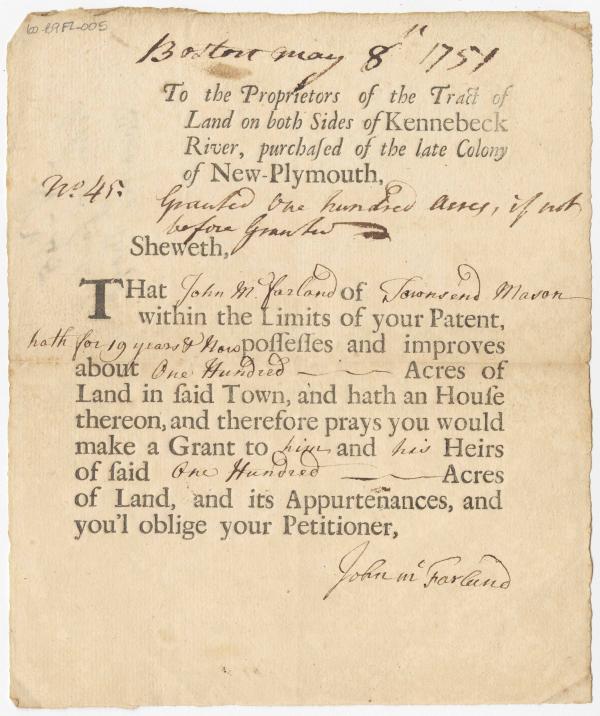 60-89FL-005
Boston may 8th 1751
To the Proprietors of the Tract of
Land on both Sides of Kennebeck
River, purchaſed of the late Colony
of New-Plymouth,
No. 45.
Granted One hundred Acres, if not
before Granted
Sheweth,
THat John Mc.farland of Townsend Mason
within the Limits of your Patent,
hath for 19 years & Now poſſeſſes and improves
about One Hundred Acres of
Land in ſaid Town, and hath an Houſe
thereon, and therefore prays you would
make a Grant to him and his Heirs
of ſaid One Hundred Acres
of Land, and its Appurtenances, and
you'l oblige your Petitioner,
John mc Farland